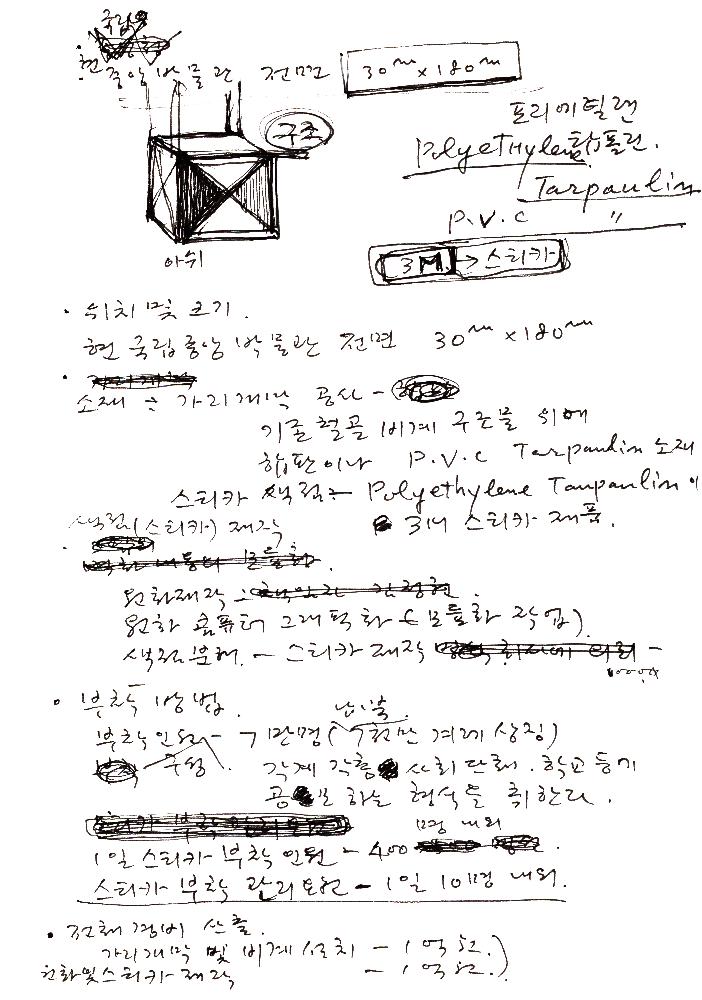 국립
현 중앙박물관 전면 30m x 180m
구조
아쉬
포리에틸렌
Polyethylene 탑폴린.
Tarpaulin
P.V.C "
3M. → 스티카
· 위치 및 크기.
현 국립중앙박물관 전면 30m x 180m
소재 : 가리개막 공사 -
기존 철골 비계 구조물 위에
합판이나 P.V.C Tarpaulin 소재
스티카 색점 : Polyethylene Tarpaulin 이
색점(스티카) 제작 3M 스티카 제품.
원화제작 :
원화 콤퓨터 그래픽화 (모듈화 작업)
색점분해. - 스티카 제작
· 부착 방법.
남북
부착인원 - 7만명 (7천만 겨레 상징)
구성. 각계 각층 사회단체. 학교 등기
공모하는 형식을 취한다.
명 내외
1일 스티카 부착 인원 - 400
스티카 부착 관리요원 - 1일 10명 내외.
· 전체경비 산출.
가리개막 및 비계설치 - 1억원.)
원화및스티카 제작 - 1억원.)